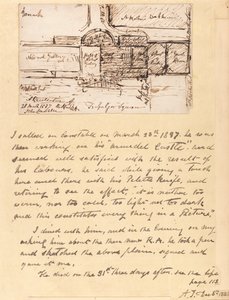 28 March 1837
Trafalgar Square
I called on Constable on March 28th 1837, he was
then working on his "Arundel Castle" and
seemed well satisfied with the result of
his labours, he said while giving a touch
here and there with his Palette Knife, and
retiring to see the effect, "it is neither too
warm, nor too cold, too light nor too dark
and this constitutes every thing in a Picture".
I dined with him, and in the evening on my
asking him about the then new R.A. he took a pen
and sketched the above plan, signed and
gave it me.
He died on the 31st three days after. see the life
page 112